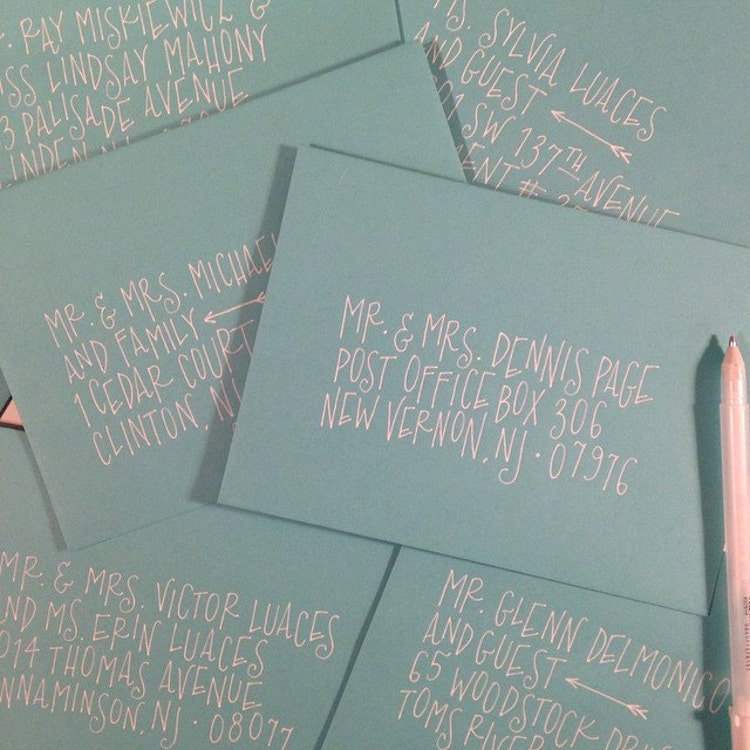 RAY MISKIEWICZ &
LINDSAY MAHONY
PALISADE AVENUE
SYLVIA LUACES
AND GUEST
SW 137TH AVENUE
MR. & MRS. MICHAEL
AND FAMILY
1 CEDAR COURT
CLINTON, NJ
MR. & MRS. DENNIS PAGE
POST OFFICE BOX 306
NEW VERNON, NJ · 07976
MR. & MRS. VICTOR LUACES
AND MS. ERIN LUACES
THOMAS AVENUE
NJ · 08077
MR. GLENN DELMONICO
AND GUEST
65 WOODSTOCK
TOMS RIVER